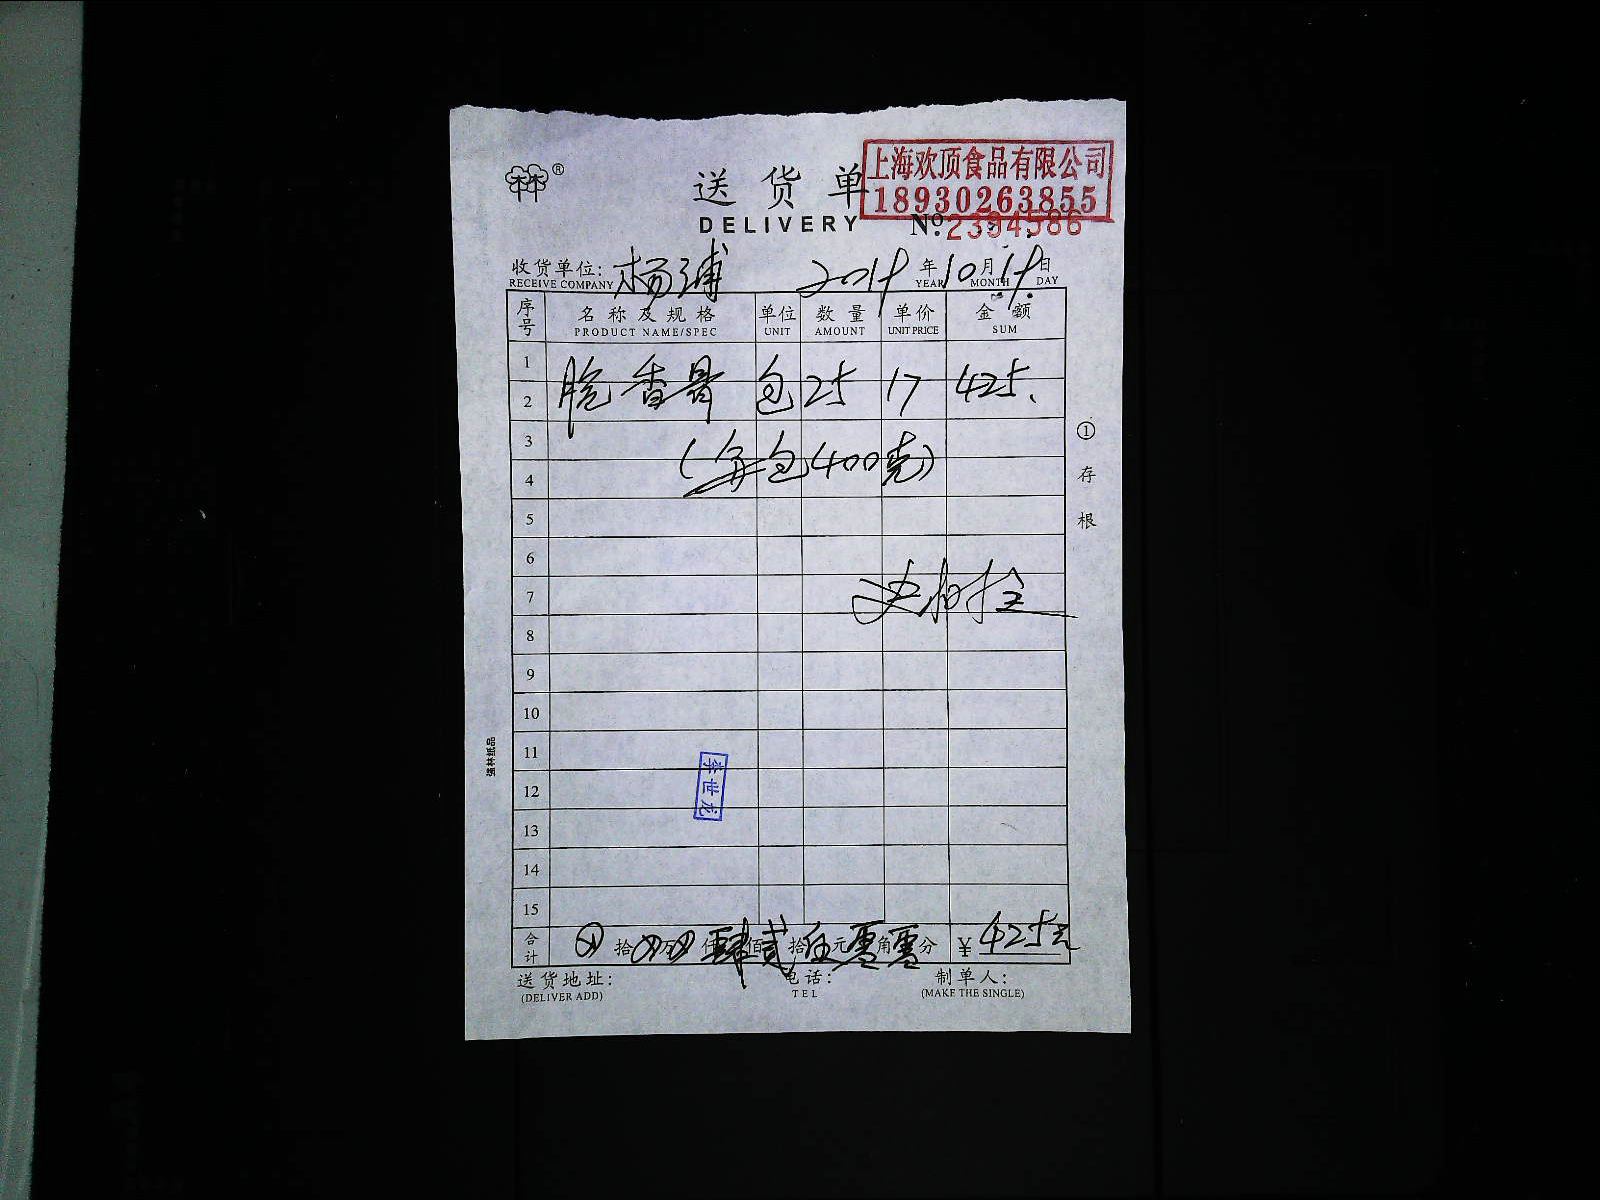 林® 送货单 上海欢顶食品有限公司
18930263855
DELIVERY №:2394586
收货单位: 杨浦 2019 年 10 月 19 日
RECEIVE COMPANY YEAR MONTH DAY
序号 名称及规格 单位 数量 单价 金额
PRODUCT NAME/SPEC UNIT AMOUNT UNIT PRICE SUM
1
2 脆香骨 包 25 17 425.
3
4 (每包400克)
5
6
7
8
9
10
11
12
13
14
15
合计 拾 万 仟 肆 佰 贰 拾 伍 元 零 角 零 分 ¥ 425元
送货地址: 电话: 制单人:
(DELIVER ADD) TEL (MAKE THE SINGLE)
①存根
强林纸品
李世龙